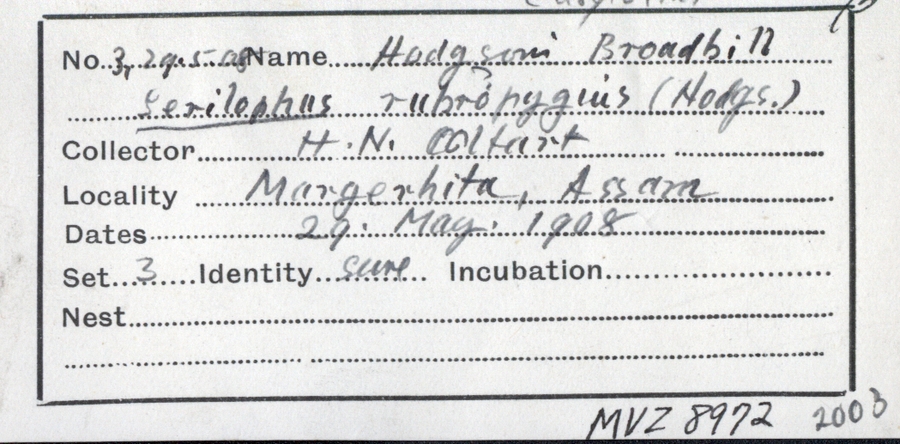 No. 3, 29.5.08 Name Hodgsoni Broadbill
Serilophus rubropygius (Hodgs.)
Collector H. N. Coltart
Locality Margerhita, Assam
Dates 29. May. 1908
Set 3 Identity sure Incubation
Nest
MVZ 8972 2003